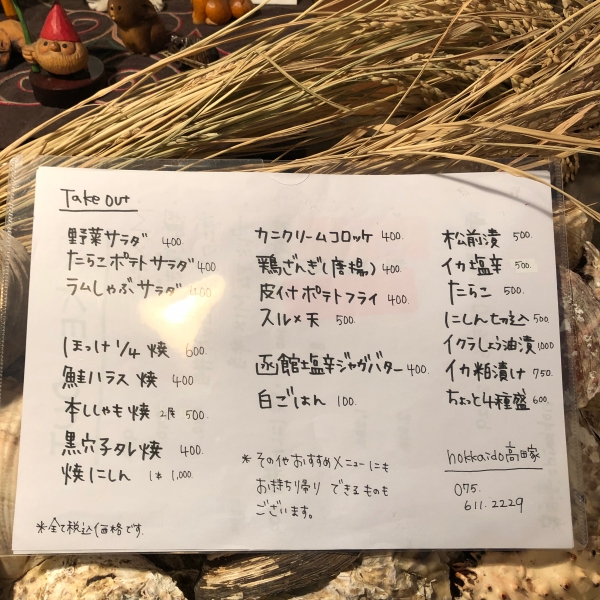 Take out
野菜サラダ 400.
たらこポテトサラダ 400
ラムしゃぶサラダ 400
ほっけ1/4焼 600.
鮭ハラス焼 400
本ししゃも焼 2尾 500.
黒穴子タレ焼 400.
焼にしん 1本 1,000.
※全て税込価格です.
カニクリームコロッケ 400.
鶏ざんぎ(唐揚) 400.
皮付ポテトフライ 400.
スルメ天 500.
函館塩辛ジャガバター 400.
白ごはん 100.
※その他おすすめメニューにも
お持ち帰りできるものも
ございます。
松前漬 500.
イカ塩辛 500.
たらこ 500.
にしん切込 500
イクラしょう油漬 1000
イカ粕漬け 750.
ちょっと4種盛 600.
hokkaido高田家
075.
611.2229